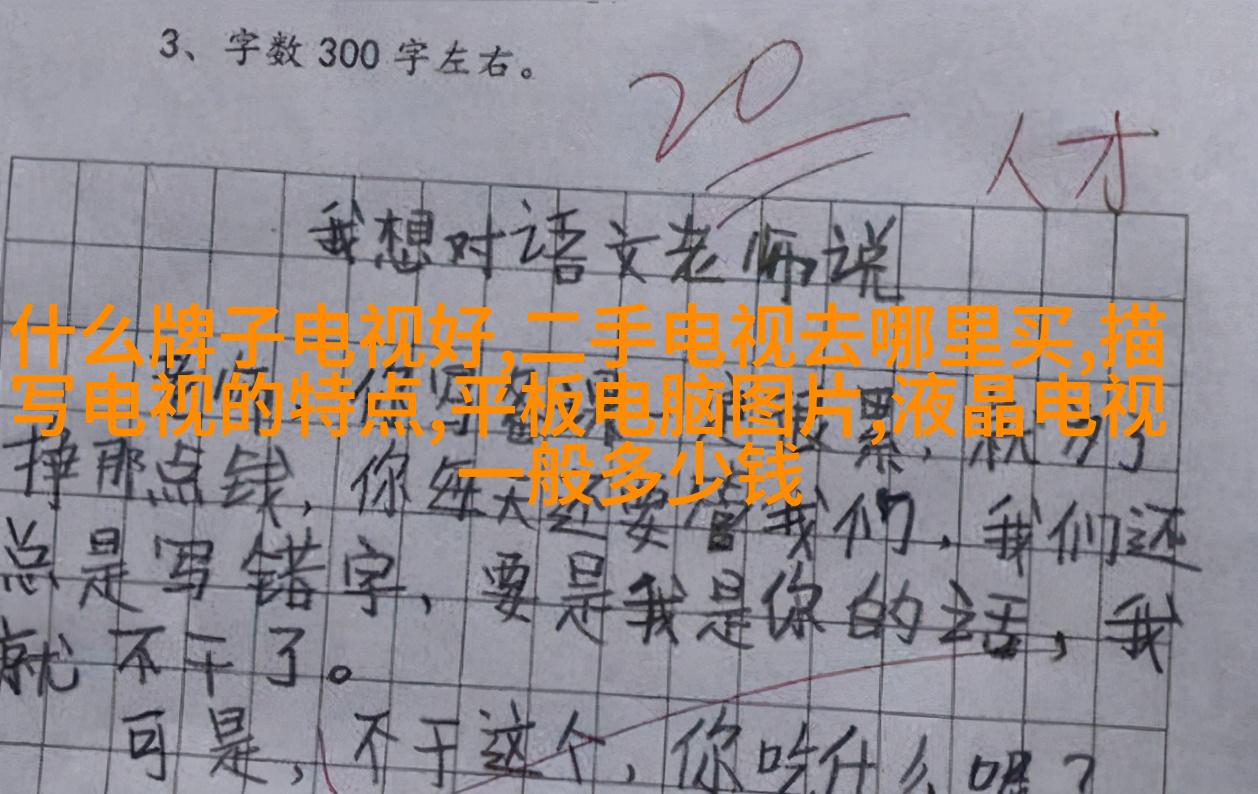 3、字数300字左右。
20
人才
我想对语文老师说
什么牌子电视好,二手电视去哪里买,描
写电视的特点,平板电脑图片,液晶电视
一般多少钱
挣那点钱，你每天还要管我们，我们还
总是写错字，要是我是你的话，我
就不干了。
可是，不干这个，你吃什么呢？